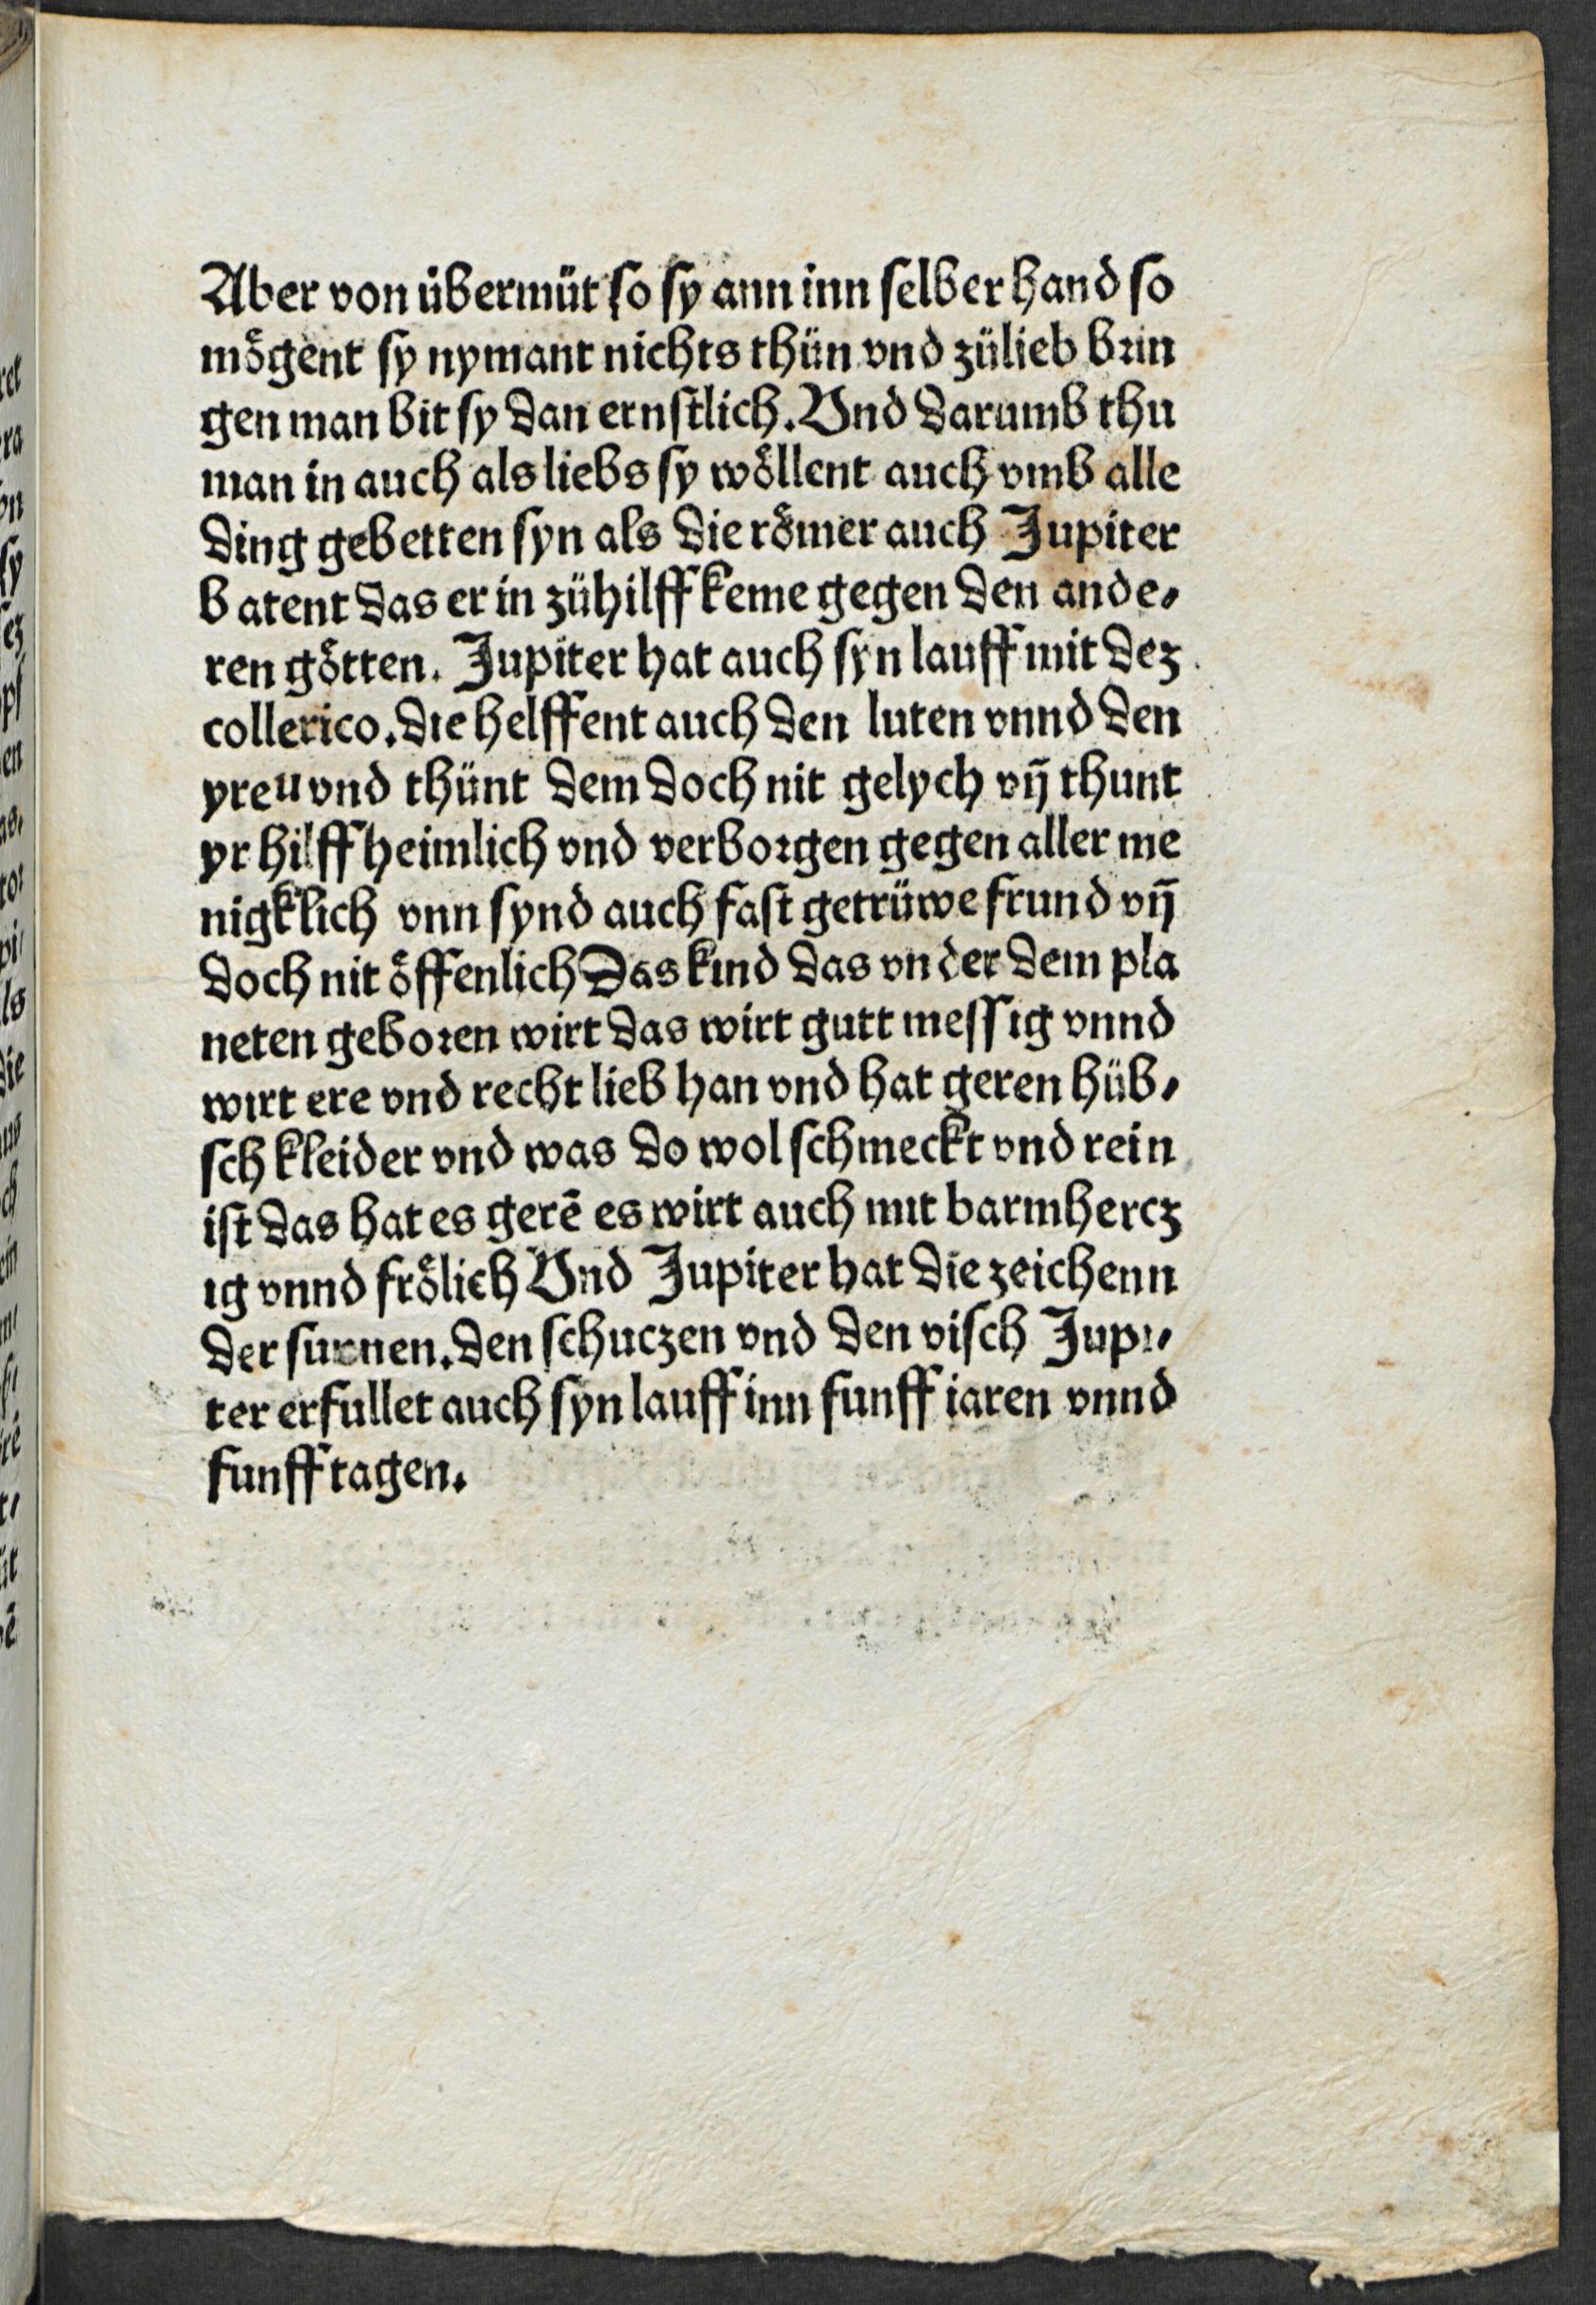 Aber von übermüt so sy ann inn selber hand so
mögent sy nymant nichts thün vnd zülieb brin
gen man bit sy dan ernstlich. Vnd darumb thu
man in auch als liebs sy wöllent auch vmb alle
ding gebetten syn als die römer auch Jupiter
batent das er in zühilff keme gegen den ande⸗
ren götten. Jupiter hat auch syn lauff mit dez
collerico. die helffent auch den luten vnnd den
yren vnd thünt dem doch nit gelych vn̄ thunt
yr hilff heimlich vnd verborgen gegen aller me
nigklich vnn synd auch fast getrüwe frund vn̄
doch nit öffenlich Das kind das vnder dem pla
neten geboren wirt das wirt gutt messig vnnd
wirt ere vnd recht lieb han vnd hat geren hüb⸗
sch kleider vnd was do wol schmeckt vnd rein
ist das hat es gerē es wirt auch mit barmhercz
ig vnnd frölich Vnd Jupiter hat die zeichenn
der sunnen. den schuczen vnd den visch Jupi⸗
ter erfullet auch syn lauff inn funff iaren vnnd
funff tagen.